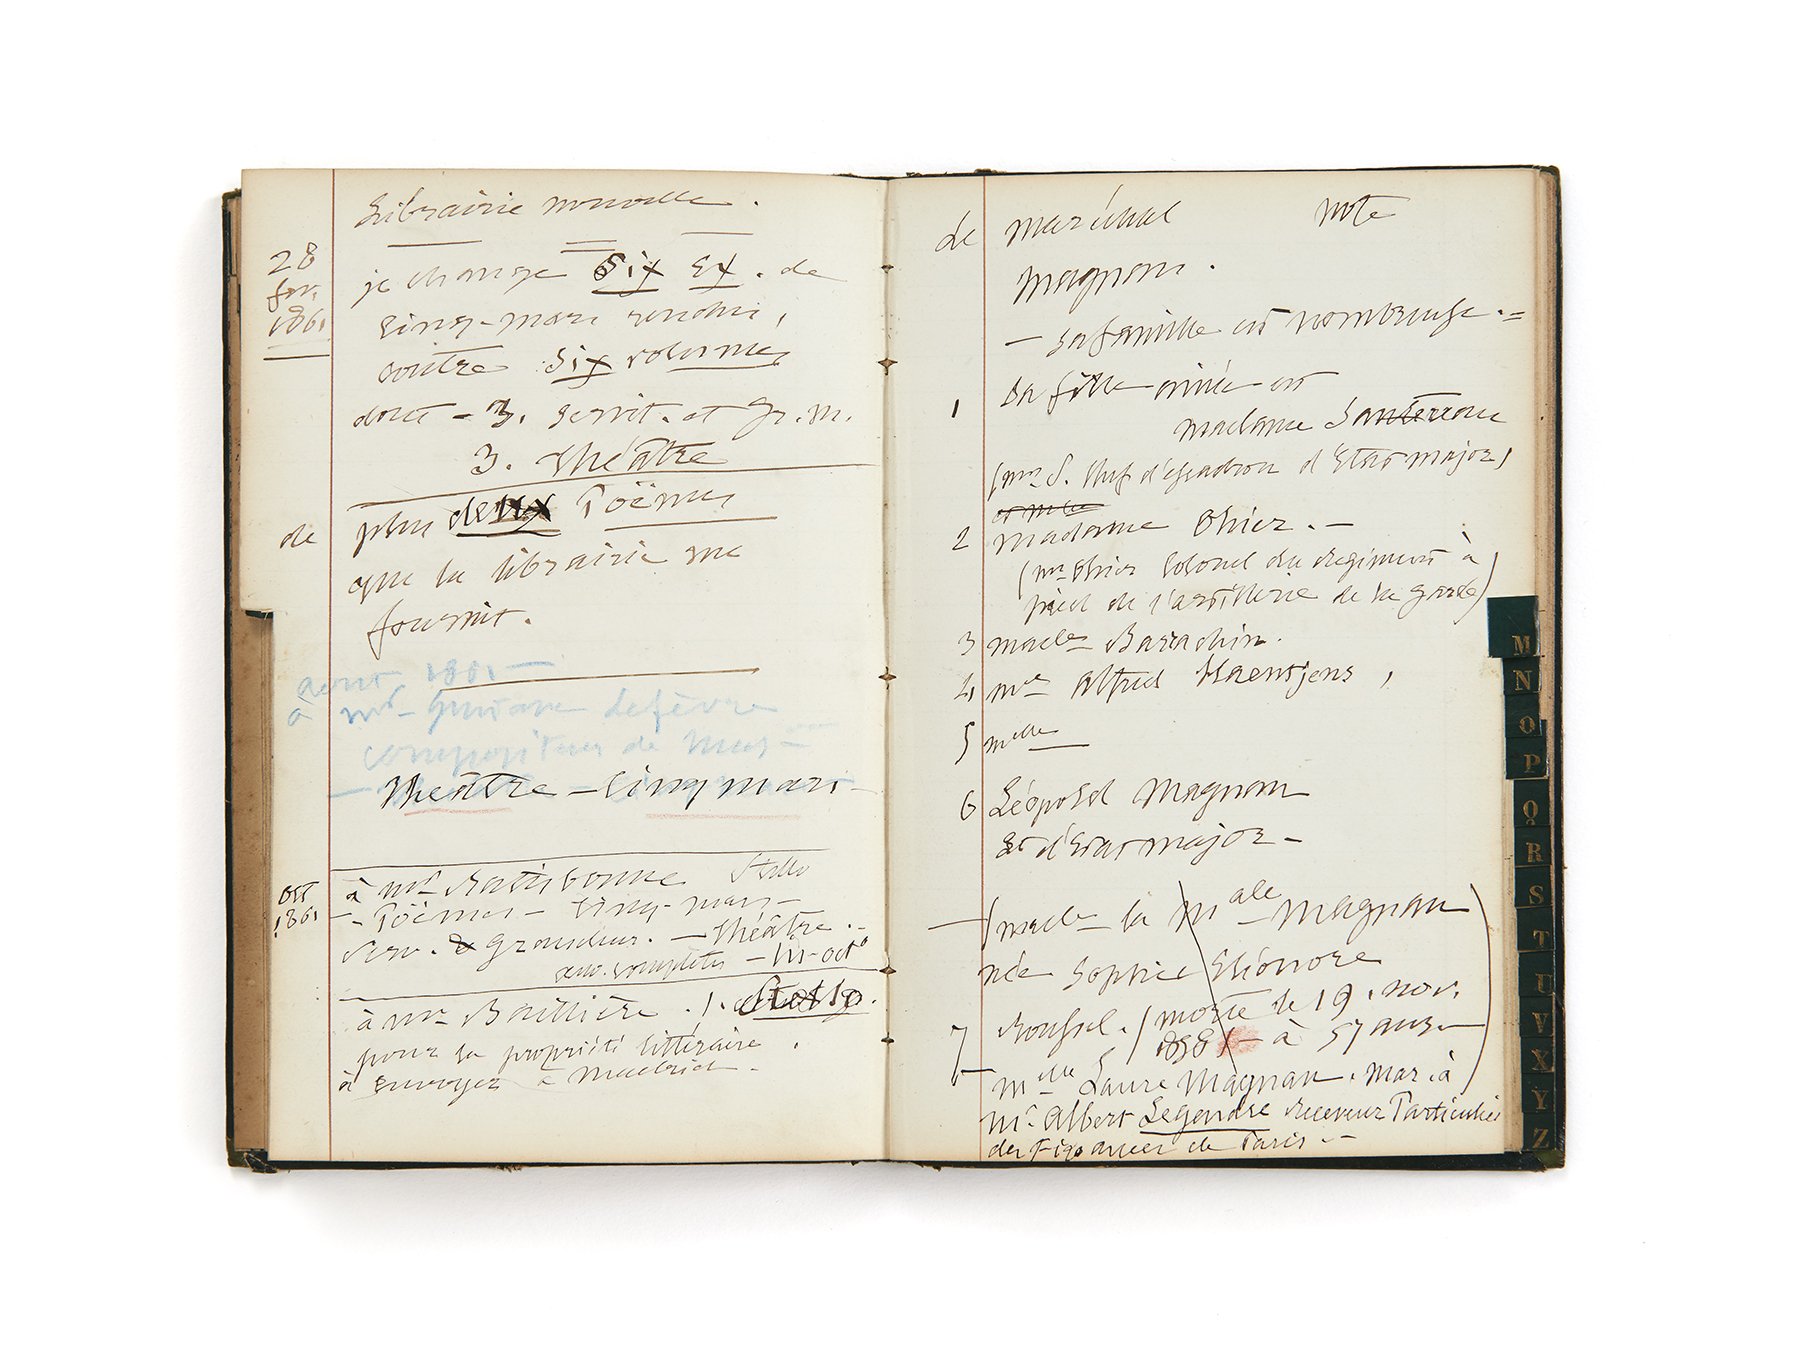 Librairie nouvelle.
28
fev.
1861
je change Six ex. de
Cinq-mars rendus,
contre Six volumes
dont - 3. Servit. et Gr. M.
3. Théâtre
de
plus deux Poëmes
que la librairie me
fournit.
aout 1861
à Mr Gustave Lefèvre
compositeur de Mus-
Théâtre - Cinq mars -
Oct
1861
à Mr Ratisbonne Stello
- Poëmes - Cinq-mars -
Serv. & Grandeur. - Théâtre -
œuv. complètes - in-octo
à Mr Baillière . 1. Stello.
pour la propriété littéraire,
à envoyer à Madrid -
de Maréchal note
Magnan.
- sa famille est nombreuse. =
1 Sa fille ainée est
Madame Santerreau
(Mr S. Chef d'escadron d'Etat major)
et Mde
2 Madame Ohier. -
(Mr Ohier Colonel du Regiment à
pied de l'artillerie de la garde)
3 Made Barrachin.
4 Me Alfred Haentjens,
5 Melle
6 Léopold Magnan
Lt d'Etat major -
- (Made la Male Magnan
née Sophie Eléonore
Roussel. (morte le 19. nov.
1858) - à 57 ans -
7 Melle Laure Magnan. mar. à
Mr. Albert Legendre Receveur Particulier
des Finances de Paris. -
M
N
O
P
Q
R
S
T
U
V
X
Y
Z